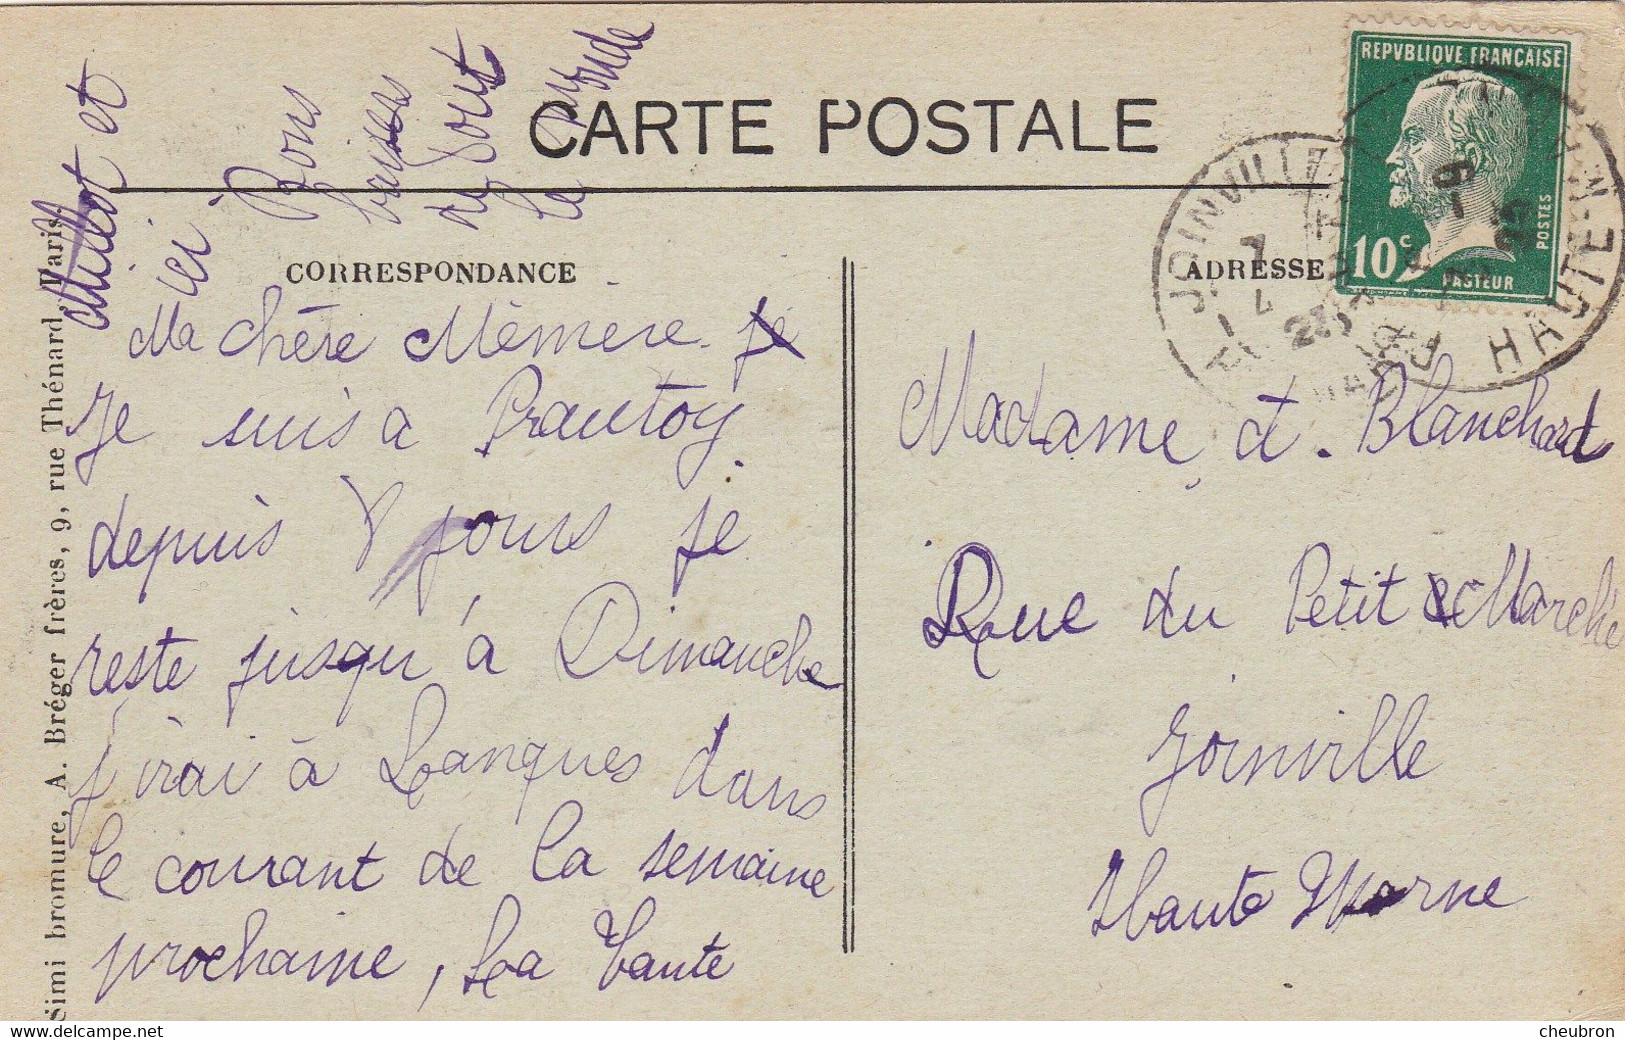 CARTE POSTALE
CORRESPONDANCE
ADRESSE
REPVBLIQVE FRANÇAISE
10c
POSTES
PASTEUR
JOINVILLE
HAUTE-M
Ma chère Mémère je
Je suis a Prautoy
depuis 8 jours je
reste jusqu'à Dimanche
j'irai à Langres dans
le courant de la semaine
prochaine, La Tante
et
ici
Bons
baisers
de tout
le monde
Madame A. Blanchard
Rue du Petit Marché
Joinville
Haute Marne
Simi bromure, A. Bréger frères, 9, rue Thénard, Paris.
www.delcampe.net
cheubron